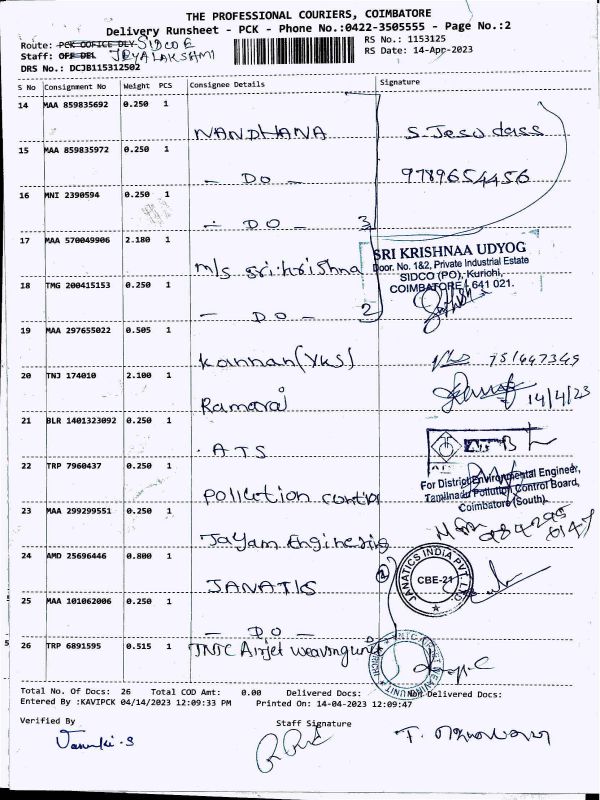 THE PROFESSIONAL COURIERS, COIMBATORE
Delivery Runsheet - PCK - Phone No.:0422-3505555 - Page No.:2
Route: PCK OOFICE DLY SIDCO E
RS No.: 1153125
Staff: OFF DEL JEYALAKSHMI
RS Date: 14-Apr-2023
DRS No.: DCJB115312502
S No Consignment No Weight PCS Consignee Details Signature
14 MAA 859835692 0.250 1
NANDHANA S. Jesu dass
15 MAA 859835972 0.250 1
- DO - 9789654456
16 MNI 2390594 0.250 1
- DO - 3
17 MAA 570049906 2.180 1
M/s Sri.krishna
SRI KRISHNAA UDYOG
Door. No. 1&2, Private Industrial Estate
SIDCO (PO), Kurichi,
COIMBATORE - 641 021.
18 TMG 200415153 0.250 1
- DO - 2
19 MAA 297655022 0.505 1
Kannan (YKS)
20 TNJ 174010 2.100 1
Ramaraj 14/4/23
21 BLR 1401323092 0.250 1
. ATS
22 TRP 7960437 0.250 1
Pollution contro
For District Environmental Engineer,
Tamilnadu Pollution Control Board,
Coimbatore (South).
23 MAA 299299551 0.250 1
Jayam Engineering
24 AMD 25696446 0.800 1
JANATICS 2
JANATICS INDIA PVT. LTD
CBE-21
25 MAA 101062006 0.250 1
- DO -
26 TRP 6891595 0.515 1
TNTC Airjet weaving unit
Total No. Of Docs: 26 Total COD Amt: 0.00 Delivered Docs: Not Delivered Docs:
Entered By :KAVIPCK 04/14/2023 12:09:33 PM Printed On: 14-04-2023 12:09:47
Verified By Staff Signature